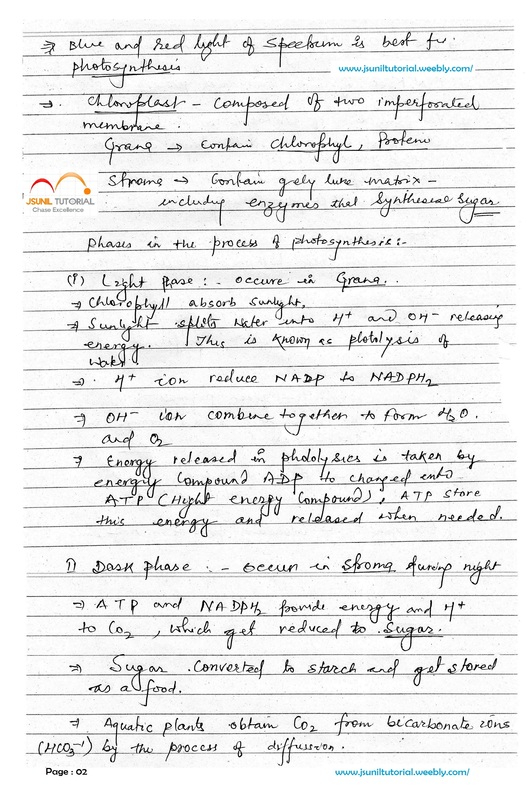 ⇒ Blue and red light of Spectrum is best for
photosynthesis
www.jsuniltutorial.weebly.com/
→ Chloroplast - Composed of two imperforated
membrane.
Grana → Contain chlorophyl, Protein
Stroma → Contain gely like matrix -
including enzymes that Synthesise Sugar
JSUNIL TUTORIAL
Chase Excellence
Phases in the process of photosynthesis:-
(i) Light Phase :- occure in Grana..
→ Chlorophyll absorb sunlight,
→ Sunlight splits water into H+ and OH- releasing
energy. This is known as plotolysis of
water
→ H+ ion reduce NADP to NADPH2
⇒ OH- ion combine together to form H2O.
and O2
⇒ Energy released in photolysics is taken by
energy Compound ADP to changed into
ATP (Hight energy Compound), ATP store
this energy and released when needed.
1) Dark phase :- occur in Stroma during night
⇒ ATP and NADPH2 provide energy and H+
to CO2, which get reduced to Sugar.
⇒ Sugar .Converted to starch and get stored
as a food.
⇒ Aquatic plants obtain CO2 from bicarbonate ions
(HCO3-1) by the process of diffussion.
Page : 02
www.jsuniltutorial.weebly.com/